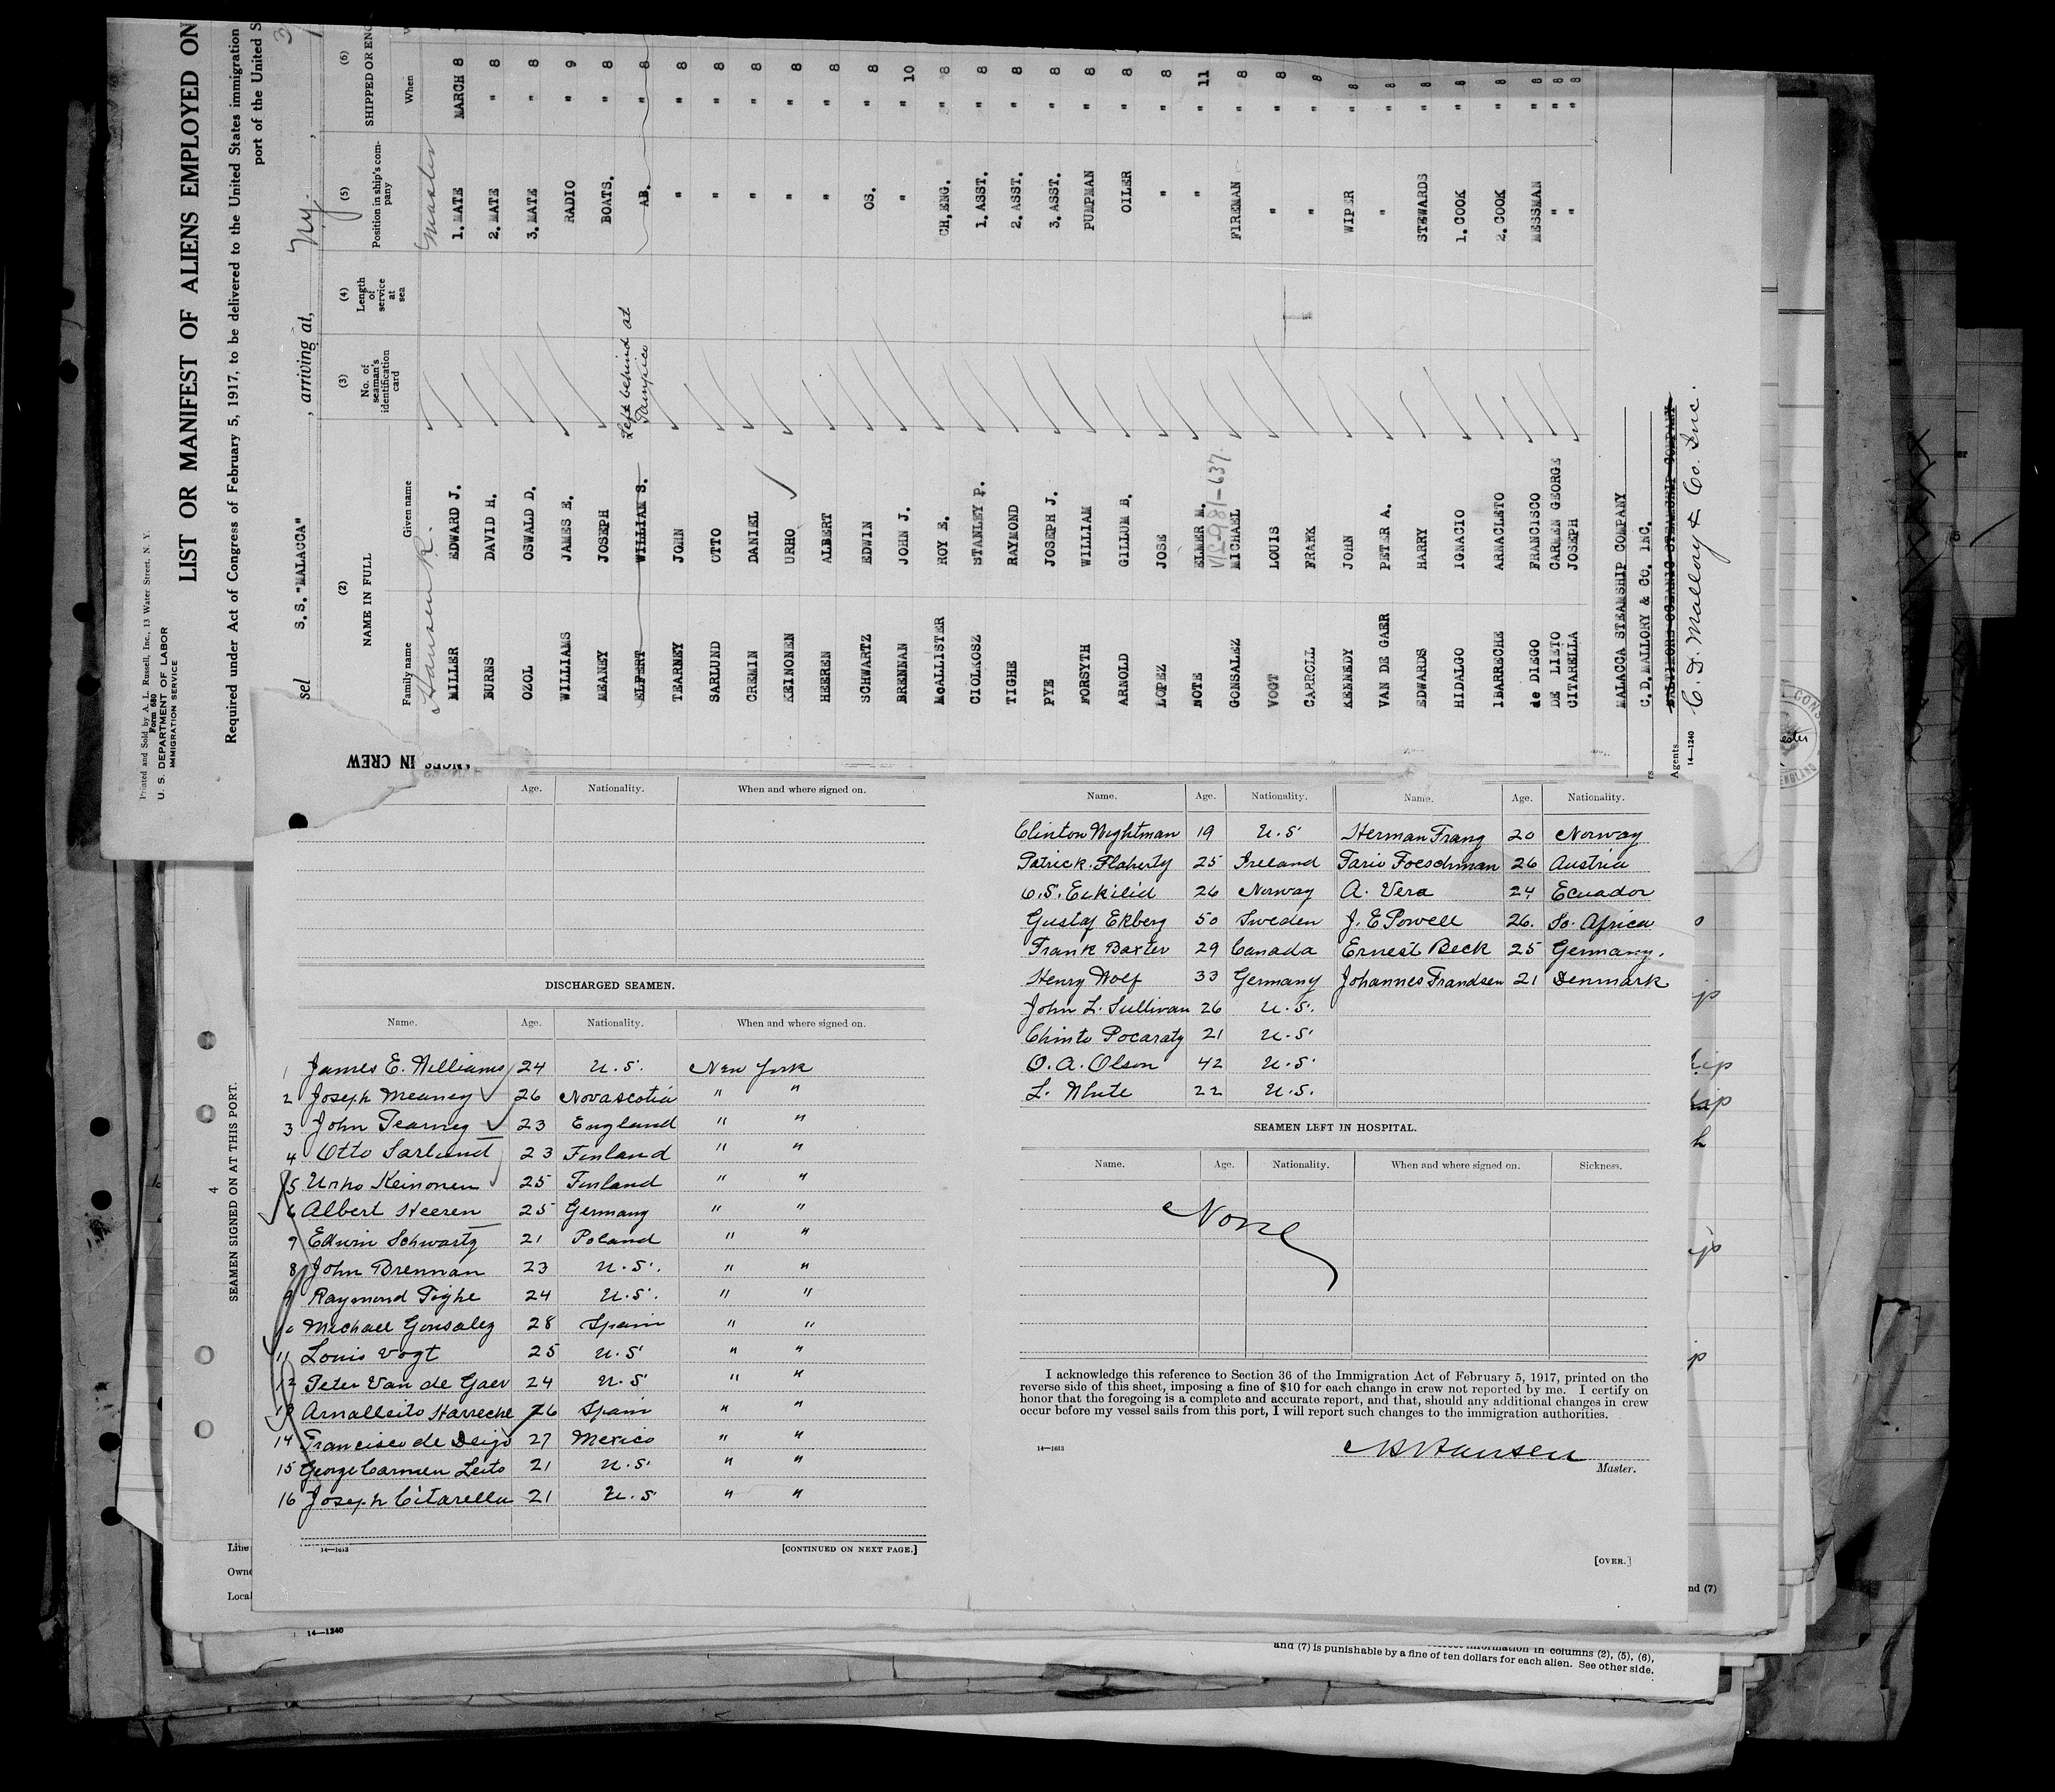 Printed and Sold by A. L. Russell, Inc., 13 Water Street, N. Y.
Form 680
U. S. DEPARTMENT OF LABOR
IMMIGRATION SERVICE
LIST OR MANIFEST OF ALIENS EMPLOYED ON
Required under Act of Congress of February 5, 1917, to be delivered to the United States immigration
port of the United S
sel S. S. "MALACCA" , arriving at, N.Y. ,
(2) (3) (4) (5) (6)
NAME IN FULL No. of seaman's identification card Length of service at sea Position in ship's company SHIPPED OR ENG
Family name Given name When
Hansen R. Master
MILLER EDWARD J. 1. MATE MARCH 8
BURNS DAVID H. 2. MATE " 8
OZOL OSWALD D. 3. MATE " 8
WILLIAMS JAMES E. RADIO " 9
MEANEY JOSEPH BOATS. " 8
ELFERT WILLIAM S. Left behind at Tampico AB. " 8
TEARNEY JOHN " " 8
SARLUND OTTO " " 8
CREMIN DANIEL " " 8
KEINONEN URHO " " 8
HEEREN ALBERT " " 8
SCHWARTZ EDWIN OS. " 8
BRENNAN JOHN J. " " 10
McALLISTER ROY E. CH, ENG. " 8
CIOLKOSZ STANLEY P. 1. ASST. " 8
TIGHE RAYMOND 2. ASST. " 8
PYE JOSEPH J. 3. ASST. " 8
FORSYTH WILLIAM PUMPMAN " 8
ARNOLD GILLUM B. OILER " 8
LOPEZ JOSE " " 8
NOTE ELMER M. " " 11
GONSALEZ MICHAEL FIREMAN " 8
VOGT LOUIS " " 8
CARROLL FRANK " " 8
KENNEDY JOHN WIPER " 8
VAN DE GAER PETER A. " " 8
EDWARDS HARRY STEWARDS " 8
HIDALGO IGNACIO 1. COOK " 8
IBARRECHE ARNACLETO 2. COOK " 8
de DIEGO FRANCISCO MESSMAN " 8
DE LIETO CARMEN GEORGE " " 8
CITARELLA JOSEPH " " 8
MALACCA STEAMSHIP COMPANY
C. D. MALLORY & CO. INC.
BALTIMORE OCEANIC STEAMSHIP COMPANY
Agents C. D. Mallory & Co. Inc.
14—1240
ANGES IN CREW
Age. Nationality. When and where signed on.
DISCHARGED SEAMEN.
Name. Age. Nationality. When and where signed on.
1 James E. Williams 24 U.S. New York
2 Joseph Meaney 26 Novascotia " "
3 John Tearney 23 England " "
4 Otto Sarlund 23 Finland " "
5 Urho Keinonen 25 Finland " "
6 Albert Heeren 25 Germany " "
7 Edwin Schwartz 21 Poland " "
8 John Brennan 23 U.S. " "
9 Raymond Tighe 24 U.S. " "
10 Michael Gonsalez 28 Spain " "
11 Louis Vogt 25 U.S. " "
12 Peter Van de Gaer 24 U.S. " "
13 Arnalleito Harreche 26 Spain " "
14 Francisco de Deigo 27 Mexico " "
15 George Carmen Leito 21 U.S. " "
16 Joseph Citarella 21 U.S. " "
14—1613
[CONTINUED ON NEXT PAGE.]
Name. Age. Nationality. Name. Age. Nationality.
Clinton Wightman 19 U.S. Herman Frang 20 Norway
Patrick Flaherty 25 Ireland Fario Foeschman 26 Austria
O.S. Eikilid 26 Norway A. Vera 24 Ecuador
Gustaf Ekberg 50 Sweden J. E Powell 26. So. Africa
Frank Baxter 29 Canada Ernest Beck 25 Germany.
Henry Wolf 33 Germany Johannes Frandsen 21 Denmark
John L. Sullivan 26 U.S.
Chinto Pocaraty 21 U.S.
O. A. Olson 42 U.S.
L. White 22 U.S.
SEAMEN LEFT IN HOSPITAL.
Name. Age. Nationality. When and where signed on. Sickness.
None
I acknowledge this reference to Section 36 of the Immigration Act of February 5, 1917, printed on the
reverse side of this sheet, imposing a fine of $10 for each change in crew not reported by me. I certify on
honor that the foregoing is a complete and accurate report, and that, should any additional changes in crew
occur before my vessel sails from this port, I will report such changes to the immigration authorities.
14—1613
Hansen
Master.
[OVER.]
SEAMEN SIGNED ON AT THIS PORT.
4
Line
Owne
Local
nd (7)
14—1240
information in columns (2), (5), (6),
and (7) is punishable by a fine of ten dollars for each alien. See other side.